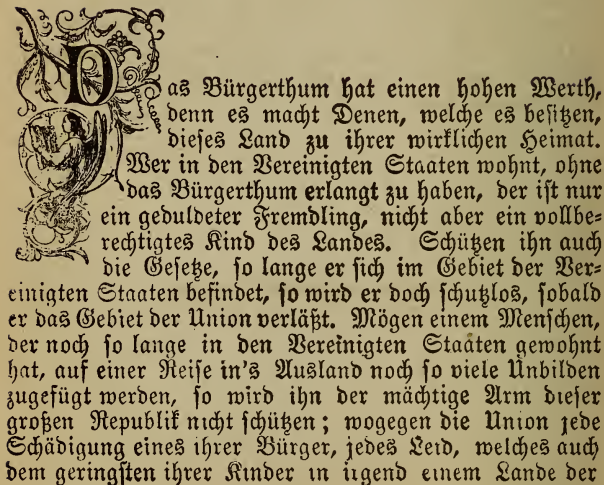 Das Bürgerthum hat einen hohen Werth,
denn es macht Denen, welche es besitzen,
dieses Land zu ihrer wirklichen Heimat.
Wer in den Vereinigten Staaten wohnt, ohne
das Bürgerthum erlangt zu haben, der ist nur
ein geduldeter Fremdling, nicht aber ein vollbe-
rechtigtes Kind des Landes. Schützen ihn auch
die Gesetze, so lange er sich im Gebiet der Ver-
einigten Staaten befindet, so wird er doch schutzlos, sobald
er das Gebiet der Union verläßt. Mögen einem Menschen,
der noch so lange in den Vereinigten Staaten gewohnt
hat, auf einer Reise in's Ausland noch so viele Unbilden
zugefügt werden, so wird ihn der mächtige Arm dieser
großen Republik nicht schützen; wogegen die Union jede
Schädigung eines ihrer Bürger, jedes Leid, welches auch
dem geringsten ihrer Kinder in irgend einem Lande der